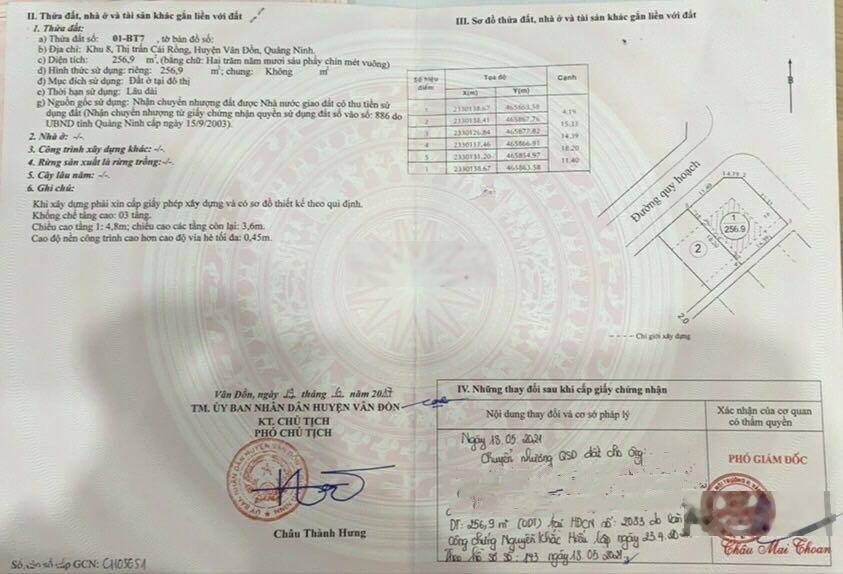 II. Thửa đất, nhà ở và tài sản khác gắn liền với đất
1. Thửa đất:
a) Thửa đất số: 01-BT7 , tờ bản đồ số:
b) Địa chỉ: Khu 8, Thị trấn Cái Rồng, Huyện Vân Đồn, Quảng Ninh.
c) Diện tích: 256,9 m², (bằng chữ: Hai trăm năm mươi sáu phẩy chín mét vuông)
d) Hình thức sử dụng: riêng: 256,9 m²; chung: Không m²
đ) Mục đích sử dụng: Đất ở tại đô thị
e) Thời hạn sử dụng: Lâu dài
g) Nguồn gốc sử dụng: Nhận chuyển nhượng đất được Nhà nước giao đất có thu tiền sử
dụng đất (Nhận chuyển nhượng từ giấy chứng nhận quyền sử dụng đất số vào số: 886 do
UBND tỉnh Quảng Ninh cấp ngày 15/9/2003).
2. Nhà ở: -/-
3. Công trình xây dựng khác: -/-
4. Rừng sản xuất là rừng trồng:-/-
5. Cây lâu năm: -/-
6. Ghi chú:
Khi xây dựng phải xin cấp giấy phép xây dựng và có sơ đồ thiết kế theo qui định.
Khống chế tầng cao: 03 tầng.
Chiều cao tầng 1: 4,8m; chiều cao các tầng còn lại: 3,6m.
Cao độ nền công trình cao hơn cao độ vỉa hè tối đa: 0,45m.
Vân Đồn, ngày tháng năm
TM. ỦY BAN NHÂN DÂN HUYỆN VÂN ĐỒN
KT. CHỦ TỊCH
PHÓ CHỦ TỊCH
Châu Thành Hưng
Số vào sổ cấp GCN: CH03651
III. Sơ đồ thửa đất, nhà ở và tài sản khác gắn liền với đất
Số hiệu điểm Tọa độ Cạnh
X(m) Y(m)
1 2330138.67 465863.58
4.19
2 2330138.41 465867.76
15.33
3 2330126.84 465877.82
14.39
4 2330117.46 465866.91
18.20
5 2330131.20 465854.97
11.40
1 2330138.67 465863.58
B
Đường quy hoạch
1
256.9
2
2.0
Chỉ giới xây dựng
IV. Những thay đổi sau khi cấp giấy chứng nhận
Nội dung thay đổi và cơ sở pháp lý
Xác nhận của cơ quan có thẩm quyền
Ngày 18.05.2021
Chuyển nhượng QSD đất cho ông:
DT: 256,9 m² (ODT) tại HĐCN số: 2033 do
Công chứng Nguyễn Khắc Hiếu lập ngày 23.4.20
Theo hồ sơ số: 143 ngày 18.05.2021
PHÓ GIÁM ĐỐC
Châu Mai Thoan